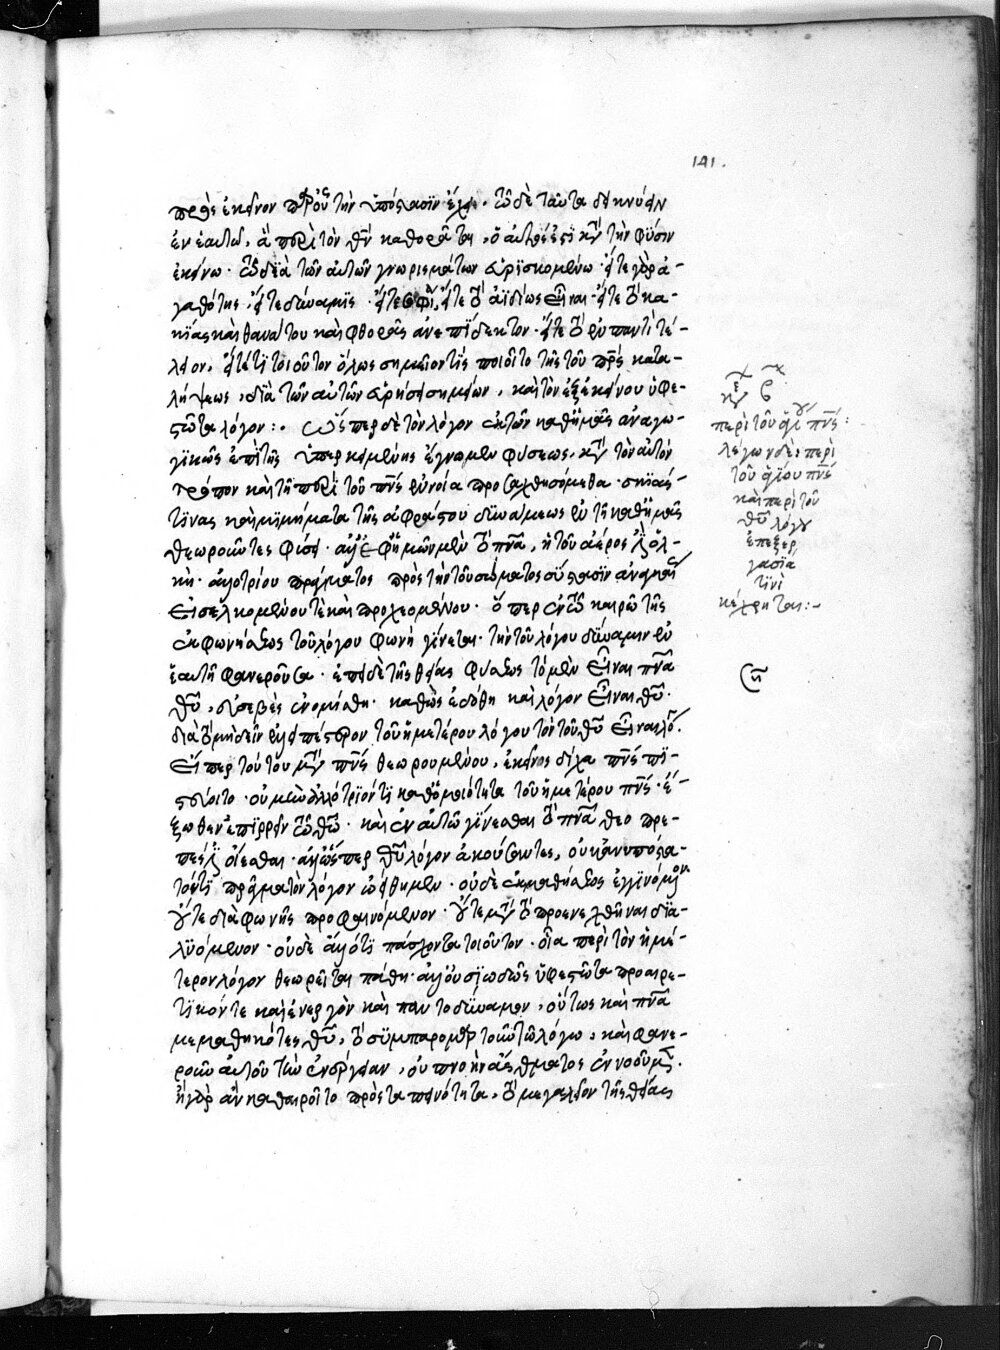 141.
πρὸς ἐκεῖνον παρ' οὗ τὴν ὑπόστασιν ἔχει· τῶ δὲ ταῦτα δεικνύειν
ἐν ἑαυτῶ, ἃ περὶ τὸν θν̅ καθορᾶται, ὁ αὐτός ἐστι κατὰ τὴν φύσιν
ἐκείνω· τῶ διὰ τῶν αὐτῶν γνωρισμάτων εὑρισκομένω· εἴτε γὰρ ἀ-
γαθότης, εἴτε δύναμις· εἴτε σοφία, εἴτε τὸ ἀϊδίως εἶναι· εἴτε τὸ κα-
κίας καὶ θανάτου καὶ φθορᾶς ἀνεπίδεκτον· εἴτε τὸ ἐν παντὶ τέ-
λειον, εἴτέ τι τοιοῦτον ὅλως σημεῖον τίς ποιοῖτο τῆς τοῦ πρ̅ς κατα-
λήψεως, διὰ τῶν αὐτῶν εὑρήσει σημείων, καὶ τὸν ἐξ ἐκείνου ὑφε-
στῶτα λόγον:· Ὥσπερ δὲ τὸν λόγον ἐκ τῶν καθ' ἡμᾶς ἀναγω-
γικῶς ἐπὶ τῆς ὑπερκειμένης ἔγνωμεν φύσεως, κατὰ τὸν αὐτὸν
τρόπον καὶ τῆ περὶ τοῦ πν̅ς ἐννοία προσαχθησόμεθα· σκιάς-
τινας καὶ μιμήματα τῆς ἀφράστου δυνάμεως ἐν τῆ καθ' ἡμᾶς
θεωροῦντες φύσει· ἀλλ' ἐφ' ἡμῶν μὲν τὸ πν̅α, ἡ τοῦ ἀέρος ἐστὶν ὁλ-
κή· ἀλλοτρίου πράγματος πρὸς τὴν τοῦ σώματος σύστασιν ἀναγκαίως
εἰσελκομένου τὲ καὶ προχεομένου· ὅπερ ἐν τῶ καιρῶ τῆς
ἐκφωνήσεως τοῦ λόγου φωνὴ γίνεται· τὴν τοῦ λόγου δύναμιν ἐν
ἑαυτῆ φανεροῦσα· ἐπὶ δὲ τῆς θείας φύσεως τὸ μὲν εἶναι πν̅α
θυ̅, εὐσεβὲς ἐνομίσθη· καθὼς ἐδόθη καὶ λόγον εἶναι θυ̅·
διὰ τὸ μὴ δεῖν ἐλλειπέστερον τοῦ ἡμετέρου λόγου τὸν τοῦ θυ̅ εἶναι λόγον.
εἴπερ τούτου μετὰ πν̅ς θεωρουμένου, ἐκεῖνος δίχα πν̅ς πι-
στεύοιτο· οὐ μὲν ἀλλότριόν τι καθ' ὁμοιότητα τοῦ ἡμετέρου πν̅ς· ἔ-
ξωθεν ἐπιρρεῖν τῶ θῶ̅· καὶ ἐν αὐτῶ γίνεσθαι τὸ πν̅α θεοπρε-
πές ἐστιν οἴεσθαι· ἀλλ' ὥσπερ θυ̅ λόγον ἀκούσαντες, οὐκ ἀνυπόστα-
τόν τι πρᾶγμα τὸν λόγον ὠήθημεν· οὐδὲ ἐκ μαθήσεως ἐγγινόμενον
οὔτε διὰ φωνῆς προφαινόμενον· οὔτε μετὰ τὸ προενεχθῆναι δια-
λυόμενον· οὐδὲ ἄλλό τι πάσχοντα τοιοῦτον· οἷα περὶ τὸν ἡμέ-
τερον λόγον θεωρεῖται πάθη· ἀλλ' οὐσιωδῶς ὑφεστῶτα προαιρε-
τικόν τε καὶ ἐνεργὸν καὶ παντοδύναμον, οὕτως καὶ πν̅α
μεμαθηκότες θυ̅, τὸ συμπαρομαρτοῦν τῶ λόγω, καὶ φανε-
ροῦν αὐτοῦ τὴν ἐνέργειαν, οὐ πνοὴν ἄσθματος ἐννοοῦμεν·
ἦ γὰρ ἂν καθαιροῖτο πρὸς ταπεινότητα, τὸ μεγαλεῖον τῆς θείας
περὶ τοῦ ἁγίου πν̅ς:
λέγων δὲ περὶ
τοῦ ἁγίου πν̅ς
καὶ περὶ τοῦ
θυ̅ λόγου
ἐπεξερ
γασία
τινὶ
κέχρηται:-